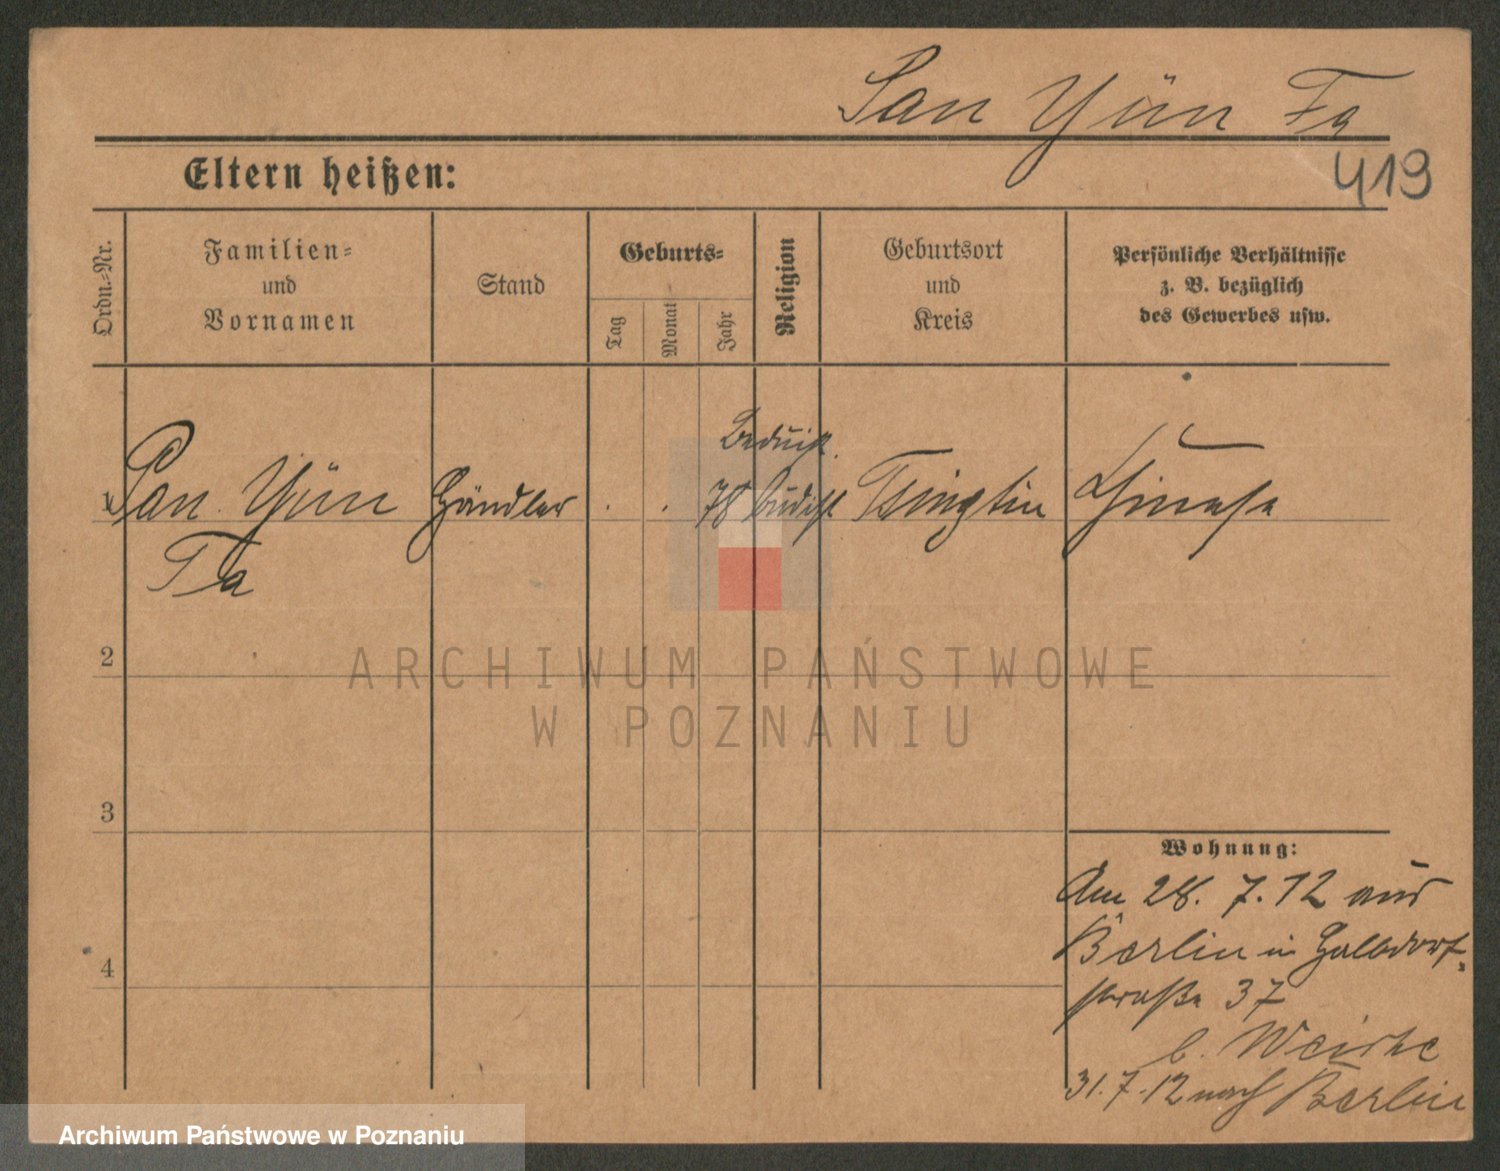 San Yün Fa
419
Eltern heißen:
Ordn.-Nr.
Familien-
und
Vornamen
Stand
Geburts-
Tag
Monat
Jahr
Religion
Geburtsort
und
Kreis
Persönliche Verhältnisse
z. B. bezüglich
des Gewerbes usw.
San Yün Händler . . 78 Tsingtin Chinese
Fa
2
3
4
Wohnung:
Am 28. 7. 12 aus
Berlin in Halbdorf-
straße 37
b.
31.7.12 nach Berlin
ARCHIWUM PAŃSTWOWE
W POZNANIU
Archiwum Państwowe w Poznaniu